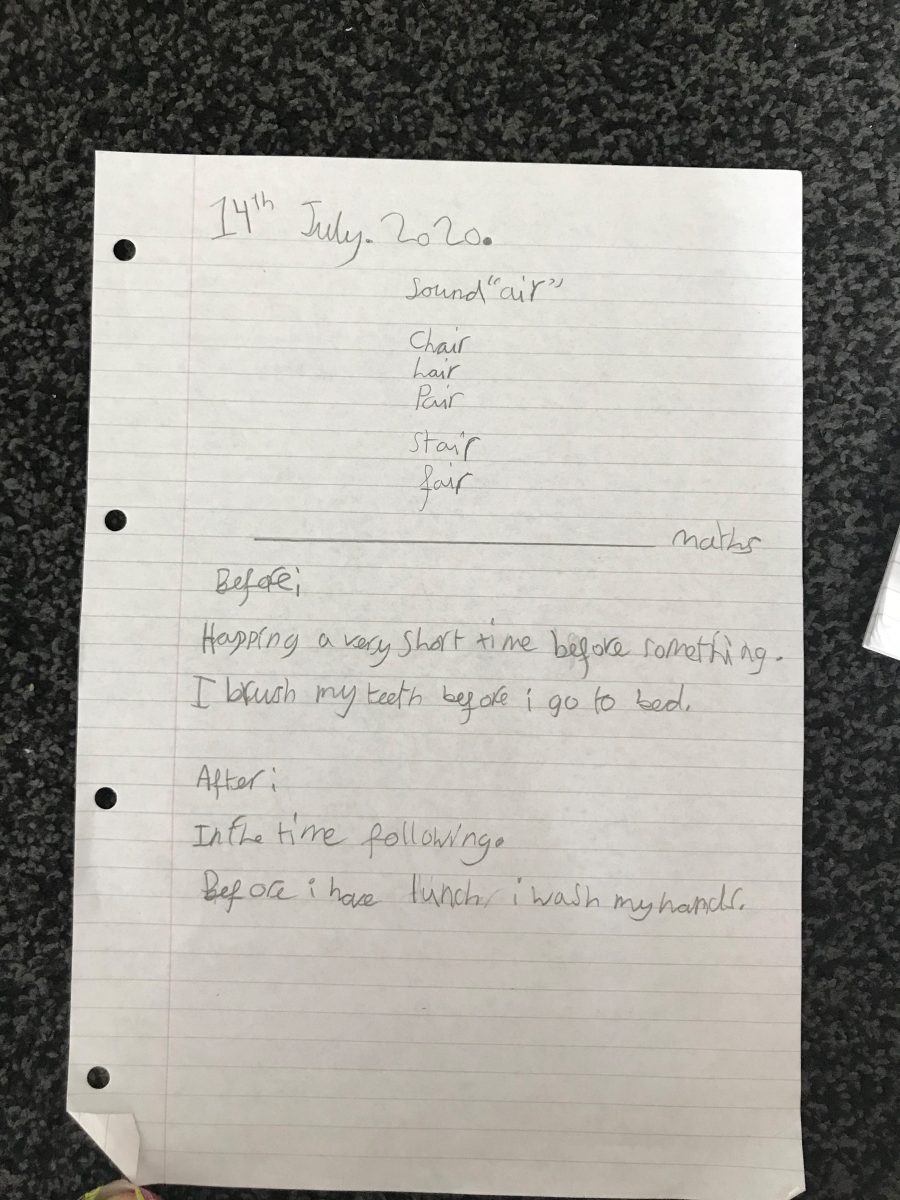 14th July. 2020.
Sound "air"
Chair
hair
Pair
Stair
fair
maths
Before;
Happing a very short time before something.
I brush my teeth before i go to bed.
After;
In the time following.
Before i have lunch, i wash my hands.